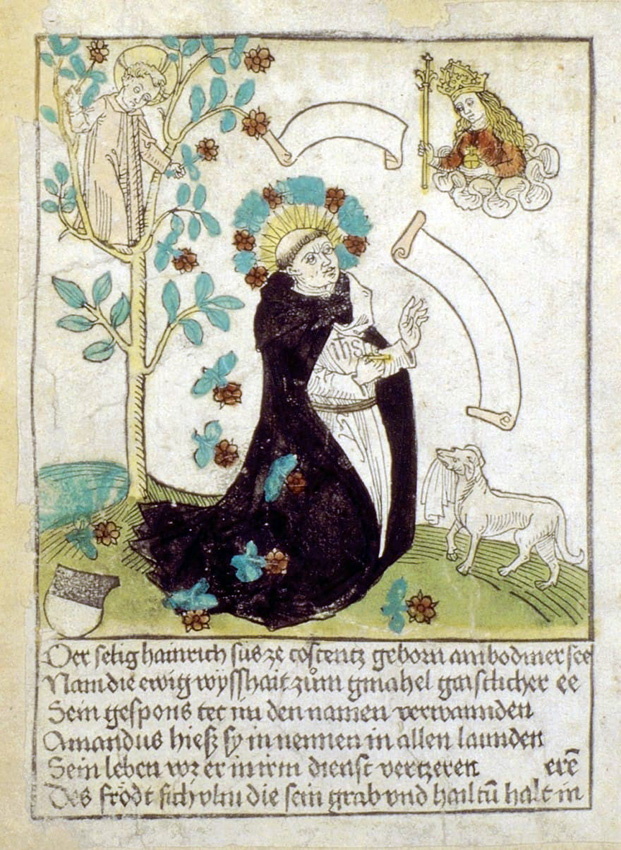 Der selig hainrich süs ze costentz geborn am bodmer see
Nam die ewig wysshait zům gmahel gaistlicher ee
Sein gespons tet im den namen verwannden
Amandus hiesz sy in nennen in allen launden
Sein leben wz er in irm dienst vertzeren
Des frödt sich vlm die sein grab vnd hailtū halt in erē